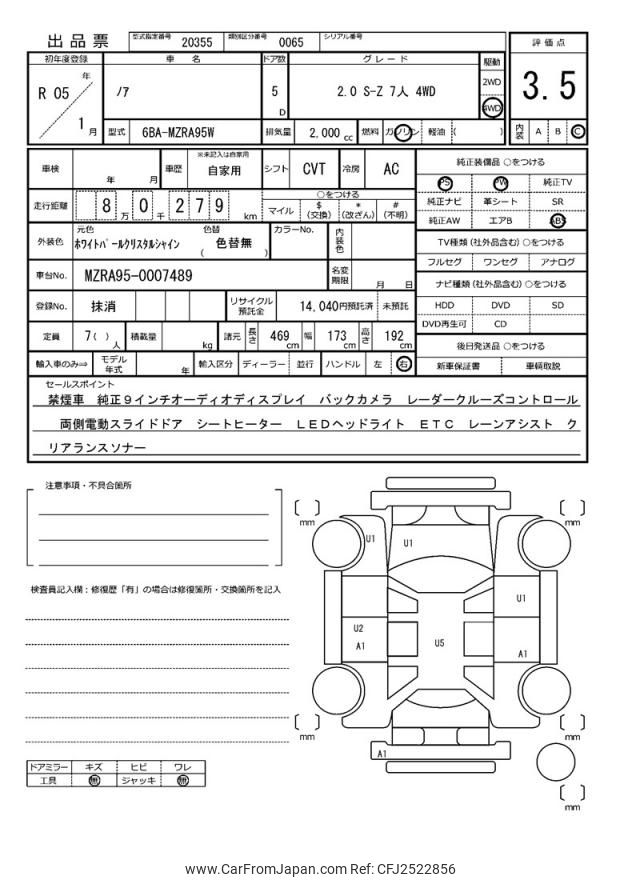 出品票
型式指定番号 20355 類別区分番号 0065 シリアル番号
評価点
3.5
内装 A B C
初年度登録 車名 ドア数 グレード 駆動
R 05 年 1 月
ノア
5 D
2.0 S-Z 7人 4WD
2WD
4WD
型式 6BA-MZRA95W 排気量 2,000 cc 燃料 ガソリン 軽油 ( )
車検 年 月 車歴 ※未記入は自家用 自家用 シフト CVT 冷房 AC
走行距離 8 万 0 千 2 7 9 km
○をつける
マイル $(交換) *(改ざん) #(不明)
外装色 元色 ホワイトパールクリスタルシャイン 色替 ( 色替無 ) カラーNo. 内装色
車台No. MZRA95-0007489 名変期限 月 日
登録No. 抹消 リサイクル預託金 14,040円預託済 未預託
定員 7( ) 人 積載量 kg 諸元 長さ 469 cm 幅 173 cm 高さ 192 cm
輸入車のみ⇒ モデル年式 年 輸入区分 ディーラー 並行 ハンドル 左 右
純正装備品 ○をつける
PS PW 純正TV
純正ナビ 革シート SR
純正AW エアB ABS
TV種類(社外品含む)○をつける
フルセグ ワンセグ アナログ
ナビ種類(社外品含む)○をつける
HDD DVD SD
DVD再生可 CD
後日発送品 ○をつける
新車保証書 車輌取説
セールスポイント
禁煙車 純正9インチオーディオディスプレイ バックカメラ レーダークルーズコントロール
両側電動スライドドア シートヒーター LEDヘッドライト ETC レーンアシスト ク
リアランスソナー
注意事項・不具合箇所
検査員記入欄:修復歴「有」の場合は修復箇所・交換箇所を記入
ドアミラー キズ ヒビ ワレ
工具 無 ジャッキ 無
[ ] mm
[ ] mm
U1
U1
U1
U2
A1
U5
A1
[ ] mm
[ ] mm
A1
[ ] mm
www.CarFromJapan.com Ref: CFJ2522856